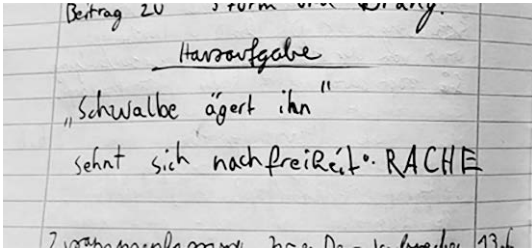 Beitrag zu Sturm und Drang.
Hausaufgabe
„Schwalbe ägert ihn"
sehnt sich nach freiheit. RACHE